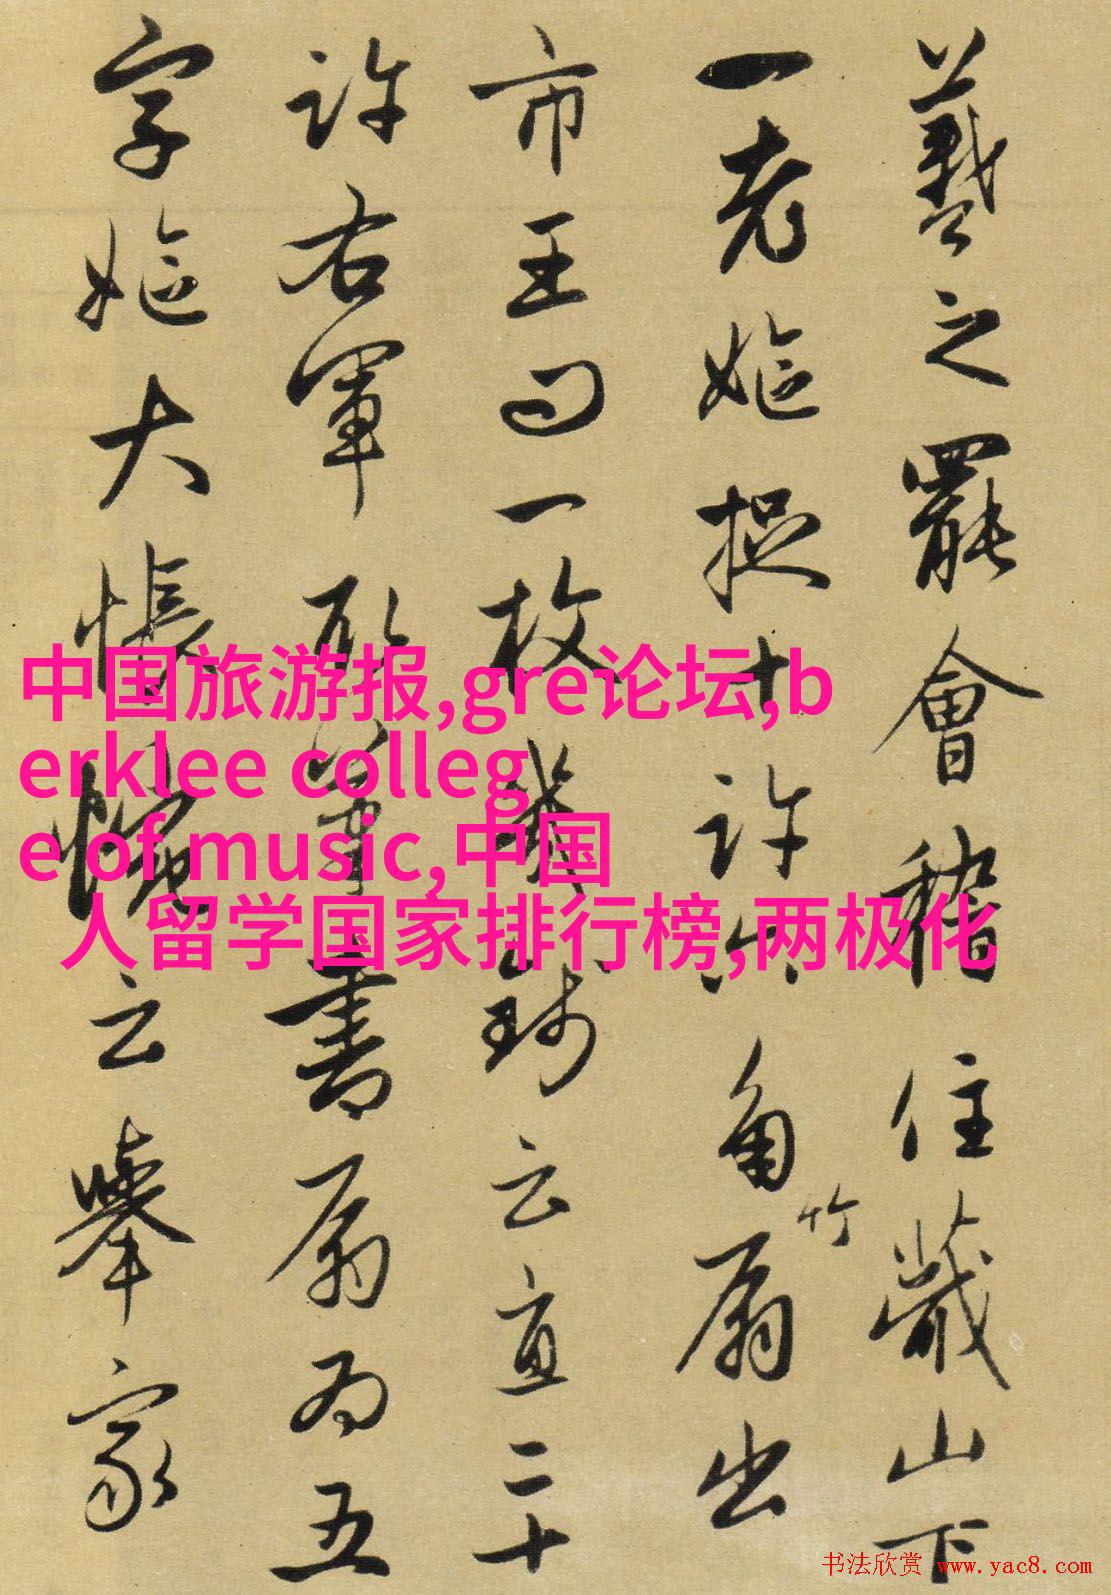 羲之罷會稽住蕺山下
一老嫗捉十許六角竹扇出
市王問一枚幾錢云直二十
許右軍取筆書扇為五
字嫗大悵惋云舉家
中国旅游报,gre论坛,b
erklee colleg
e of music,中国
人留学国家排行榜,两极化
书法欣赏 www.yac8.com